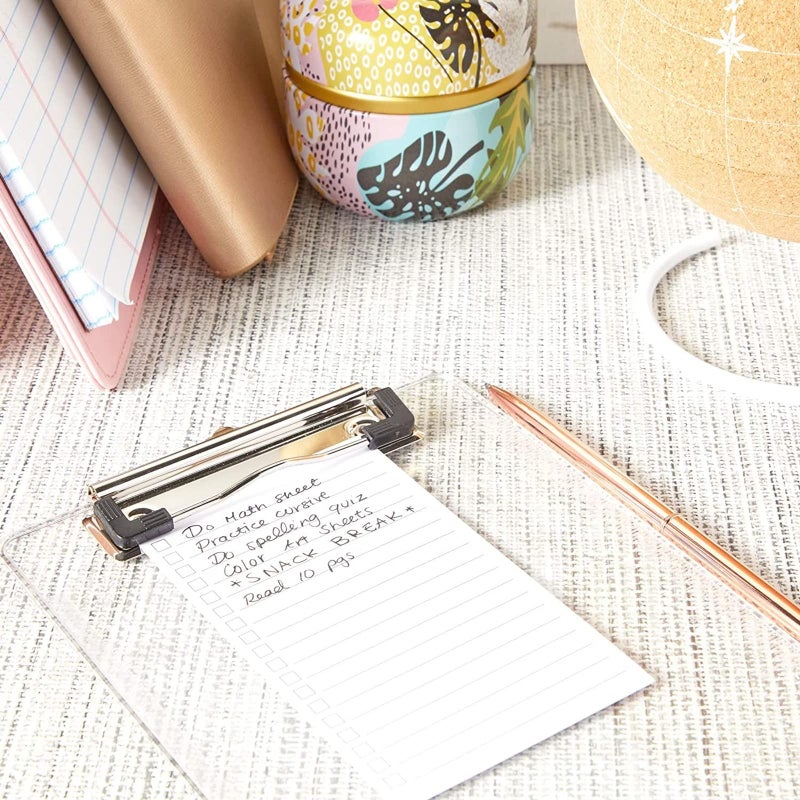 Do Math sheet
Practice cursive
Do spelling quiz
Color Art sheets
+ SNACK BREAK +
Read 10 pgs